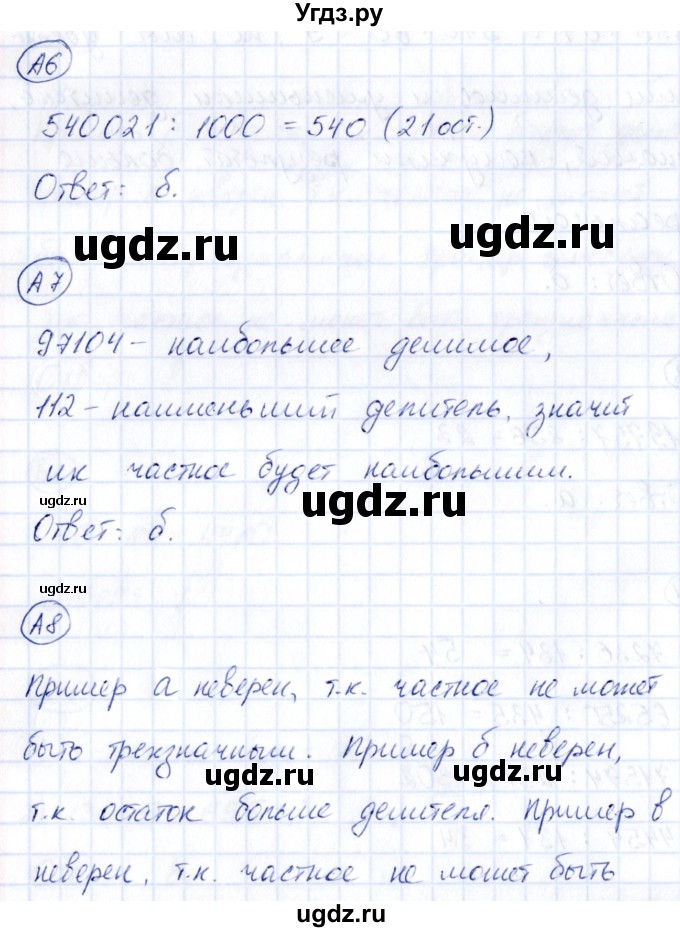 Угдз.ру
А6
540021 : 1000 = 540 (21 ост.)
Ответ: б.
ugdz.ru
ugdz.ru
А7
97104 – наибольшее делимое,
112 – наименьший делитель, значит
их частное будет наибольшим.
ugdz.ru
ugdz.ru
Ответ: б.
ugdz.ru
А8
Пример а неверен, т.к. частное не может
быть трехзначным. Пример б неверен,
ugdz.ru
ugdz.ru
т.к. остаток больше делителя. Пример в
неверен, т.к. частное не может быть
ugdz.ru